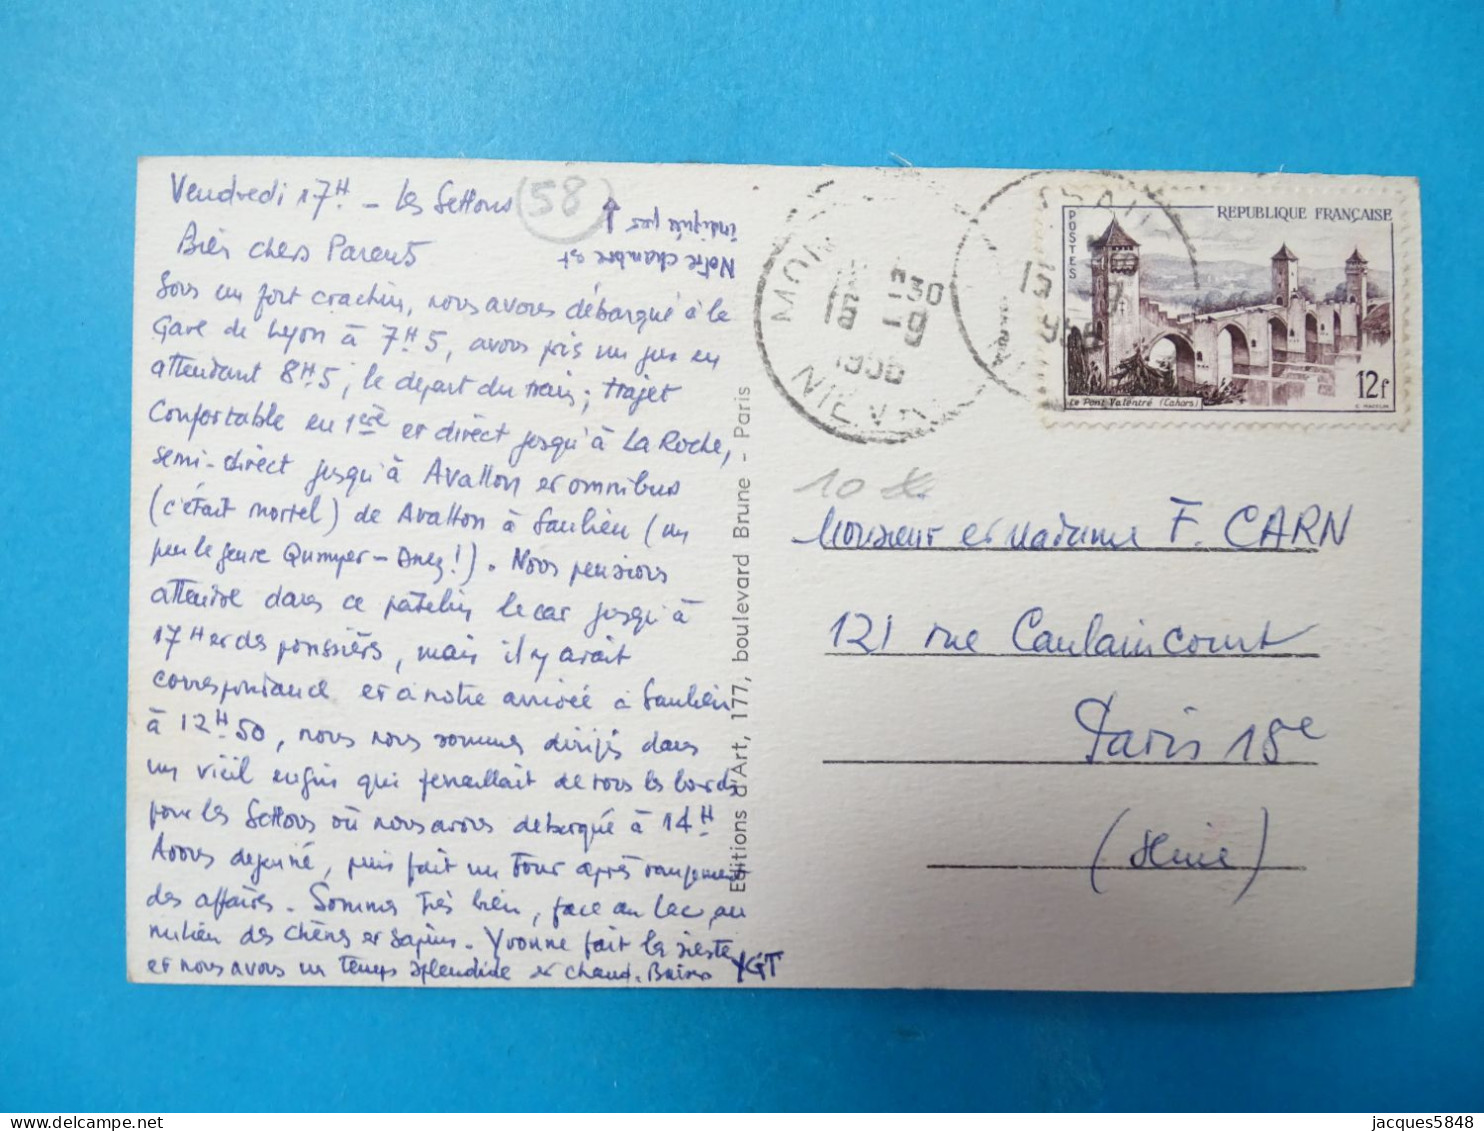 Vendredi 17H - Les Settons
(58)
Notre chambre est
indiquée pas
Bien chers Parents
Sous un fort crachin, nous avons débarqué à la
Gare de Lyon à 7H5, avons pris un jus en
attendant 8H5, le départ du train; trajet
Confortable en 1ère et direct jusqu'à La Roche,
semi-direct jusqu'à Avallon et omnibus
(c'était mortel) de Avallon à Saulieu (un
peu le genre Quimper - !). Nous pensions
attendre dans ce patelin le car jusqu'à
17H et des poussières, mais il y avait
correspondance et à notre arrivée à Saulieu
à 12H50, nous nous sommes dirigés dans
un vieil engin qui ferraillait de tous les bords
pour les Settons où nous avons débarqué à 14H
Avons dejeuné, puis fait un tour après rangement
des affaires. Sommes très bien, face au Lac, au
milieu des chênes et sapins. Yvonne fait la sieste
et nous avons un temps splendide et chaud. Baisers YGT
Editions d'Art, 177, boulevard Brune - Paris
MON
30
15 -9
1956
NIEVR
15
POSTES
REPUBLIQUE FRANÇAISE
Le Pont Valentré (Cahors)
12f
10
Monsieur et Madame F. CARN
121 rue Caulaincourt
Paris 18e
(Seine)
jacques5848